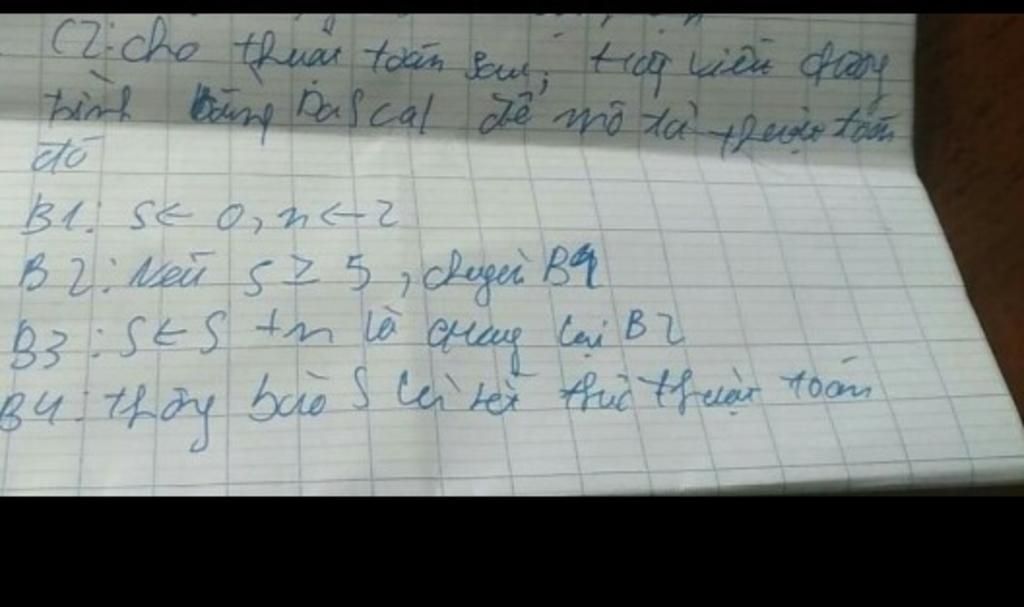 C2: cho thuật toán sau, hãy viết chương
trình bằng Pascal để mô tả thuật toán
đó
B1: S ← 0, n ← 2
B2: Nếu S ≥ 5, chuyển B4
B3: S ← S + n và quay lại B2
B4: thông báo S và kết thúc thuật toán